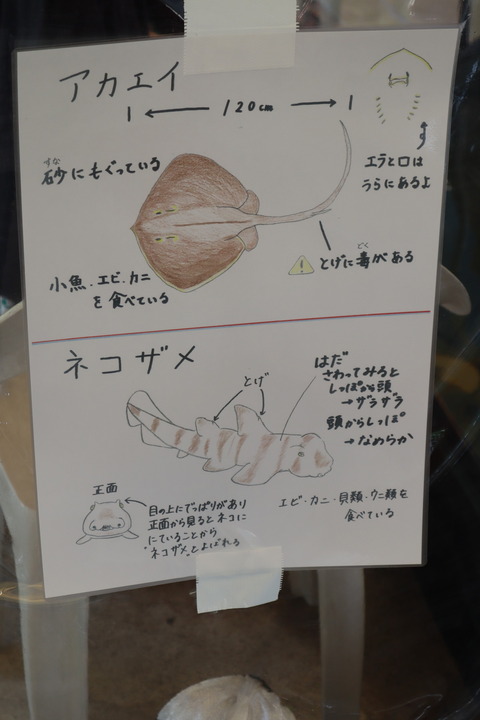 アカエイ
120cm
砂にもぐっている
すな
エラと口は
うらにあるよ
とげに毒がある
どく
小魚・エビ・カニ
を食べている
ネコザメ
とげ
はだ
さわってみると
しっぽから頭
→ザラザラ
頭からしっぽ
→なめらか
正面
目の上にでっぱりがあり
正面から見るとネコに
にていることから
"ネコザメ"とよばれる
エビ・カニ・貝類・ウニ類を
食べている